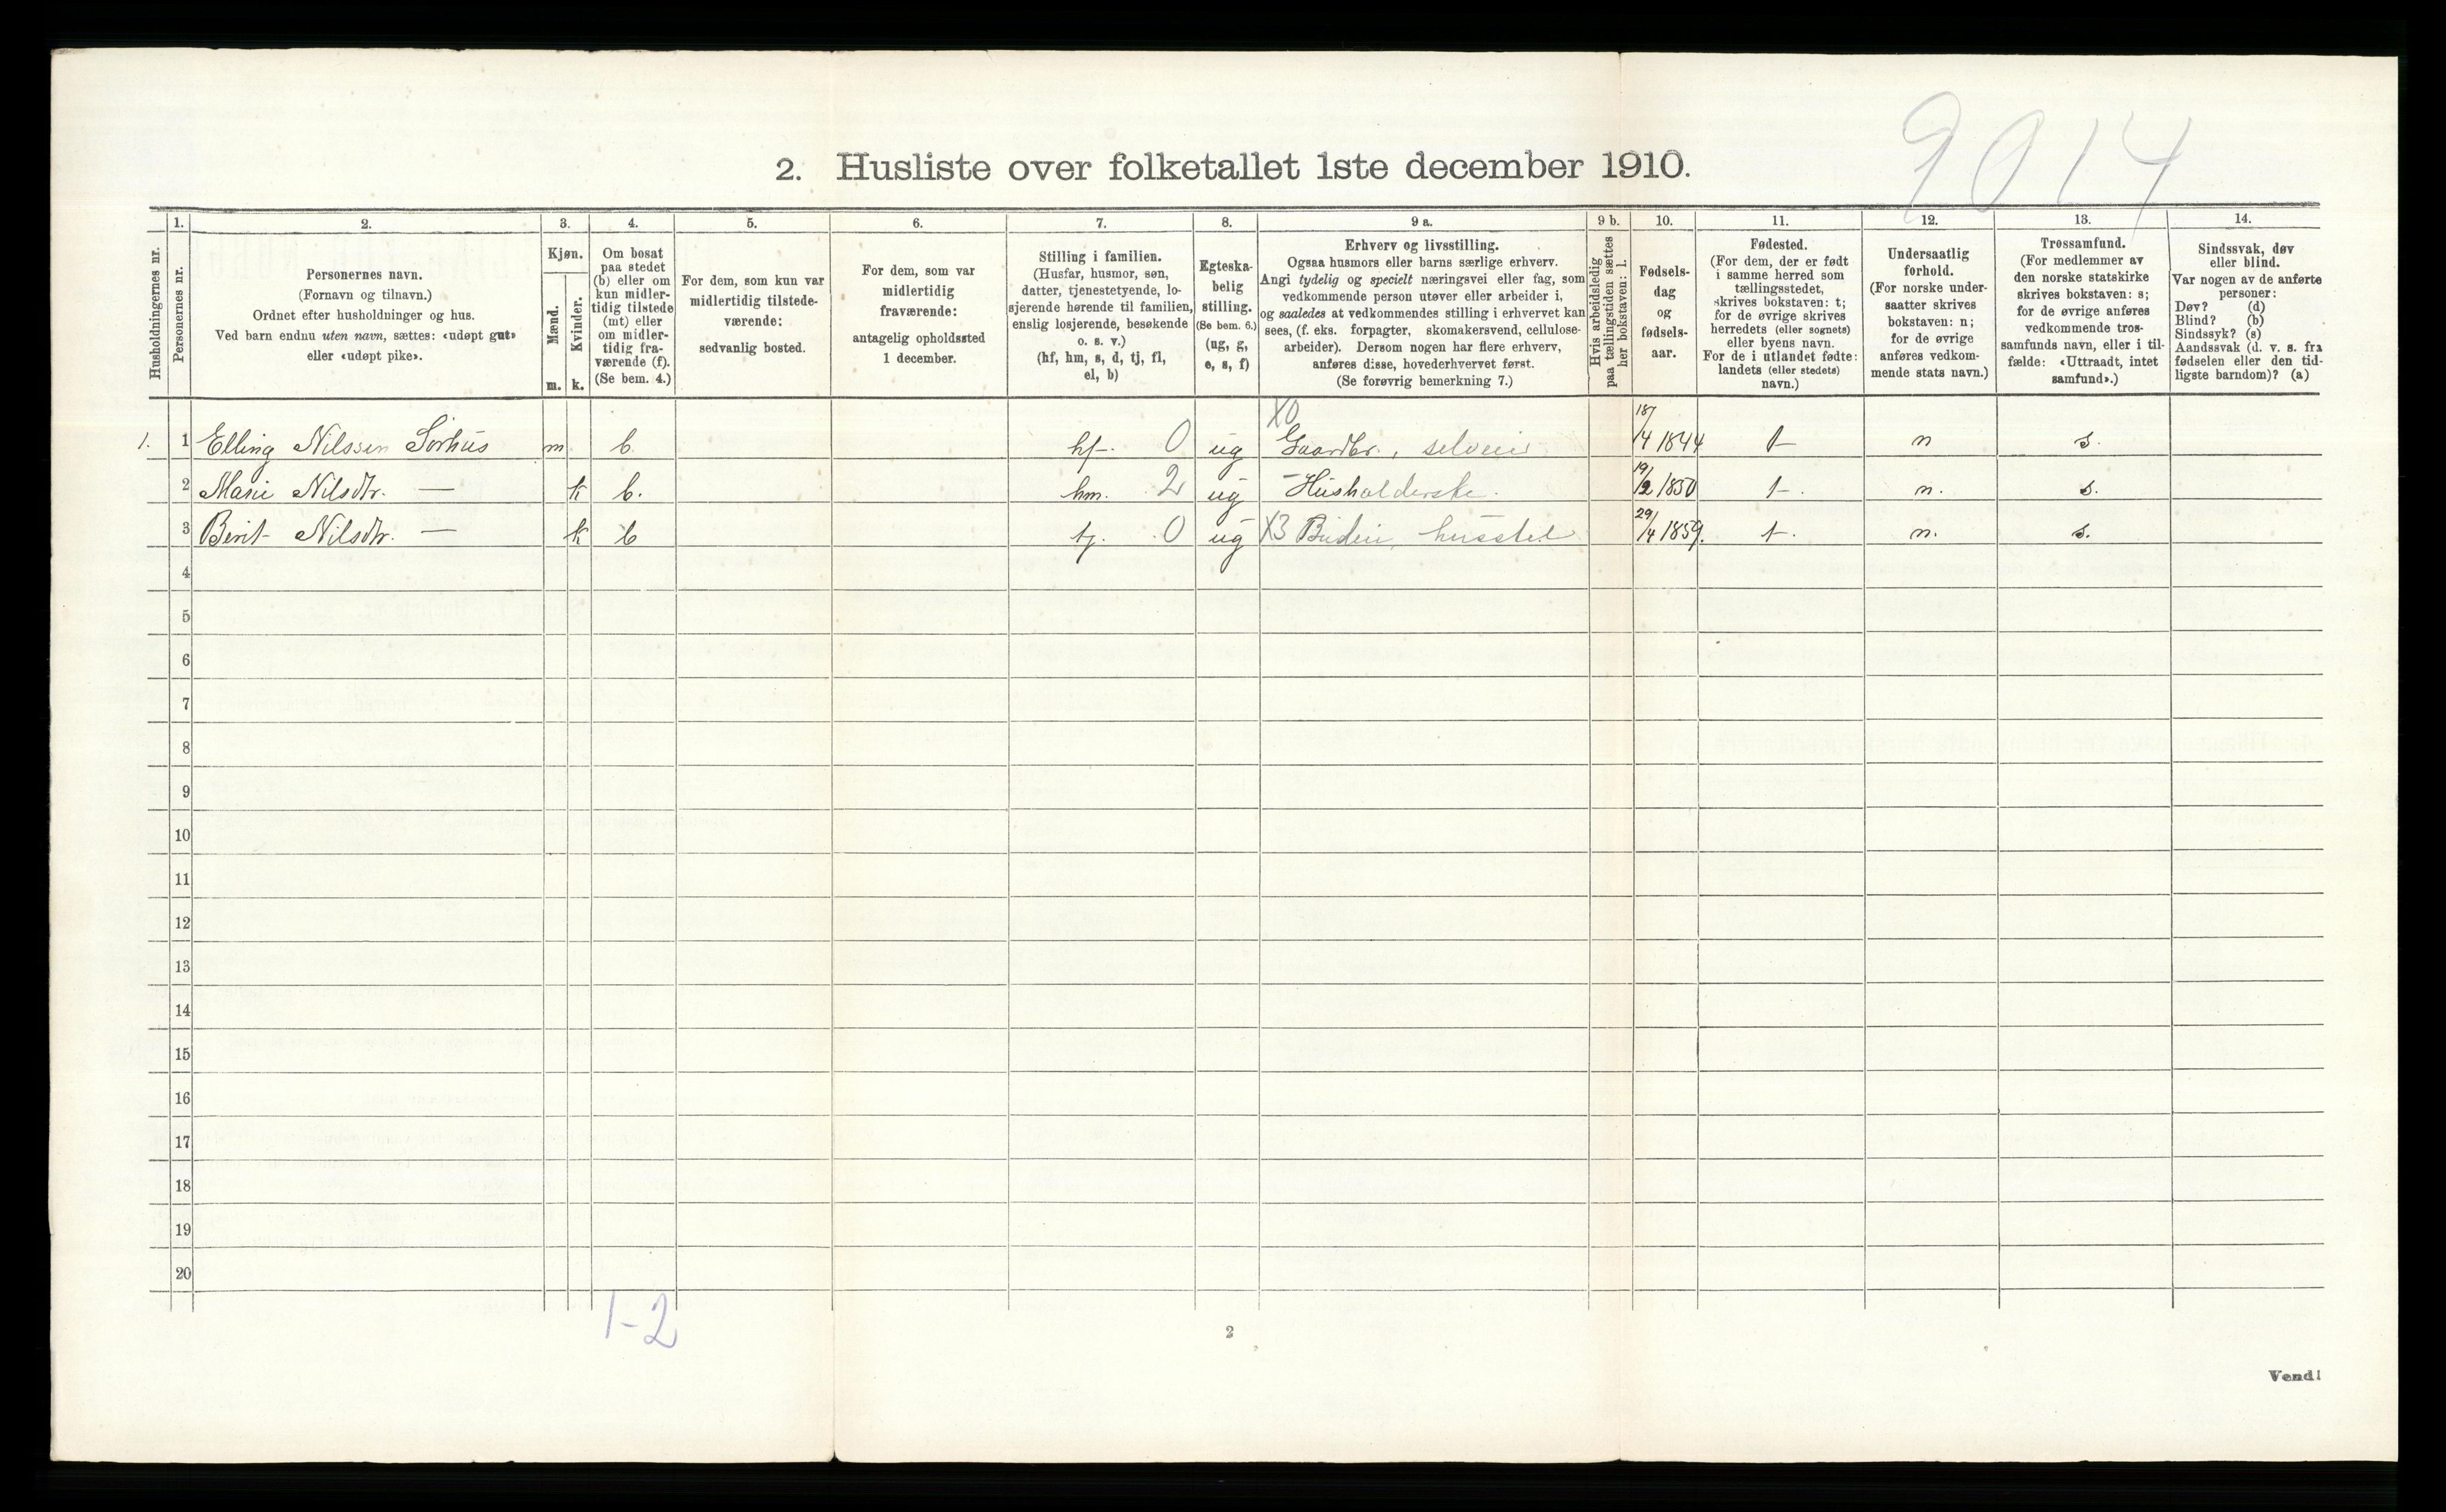 9014
2. Husliste over folketallet 1ste december 1910.
Husholdningernes nr.
1.
Personernes nr.
2.
Personernes navn.
(Fornavn og tilnavn.)
Ordnet efter husholdninger og hus.
Ved barn endnu uten navn, sættes: «udøpt gut»
eller «udøpt pike».
3.
Kjøn.
Mænd.
Kvinder.
m.
k.
4.
Om bosat
paa stedet
(b) eller om
kun midler-
tidig tilstede
(mt) eller
om midler-
tidig fra-
værende (f).
(Se bem. 4.)
5.
For dem, som kun var
midlertidig tilstede-
værende:
sedvanlig bosted.
6.
For dem, som var
midlertidig
fraværende:
antagelig opholdssted
1 december.
7.
Stilling i familien.
(Husfar, husmor, søn,
datter, tjenestetyende, lo-
sjerende hørende til familien,
enslig losjerende, besøkende
o. s. v.)
(hf, hm, s, d, tj, fl,
el, b)
8.
Egteska-
belig
stilling.
(Se bem. 6.)
(ug, g,
e, s, f)
9 a.
Erhverv og livsstilling.
Ogsaa husmors eller barns særlige erhverv.
Angi tydelig og specielt næringsvei eller fag, som
vedkommende person utøver eller arbeider i,
og saaledes at vedkommendes stilling i erhvervet kan
sees, (f. eks. forpagter, skomakersvend, cellulose-
arbeider). Dersom nogen har flere erhverv,
anføres disse, hovederhvervet først.
(Se forøvrig bemerkning 7.)
9 b.
Hvis arbeidsledig
paa tællingstiden sættes
her bokstaven: l.
10.
Fødsels-
dag
og
fødsels-
aar.
11.
Fødested.
(For dem, der er født
i samme herred som
tællingsstedet,
skrives bokstaven: t;
for de øvrige skrives
herredets (eller sognets)
eller byens navn.
For de i utlandet fødte:
landets (eller stedets)
navn.)
12.
Undersaatlig
forhold.
(For norske under-
saatter skrives
bokstaven: n;
for de øvrige
anføres vedkom-
mende stats navn.)
13.
Trossamfund.
(For medlemmer av
den norske statskirke
skrives bokstaven: s;
for de øvrige anføres
vedkommende tros-
samfunds navn, eller i til-
fælde: «Uttraadt, intet
samfund».)
14.
Sindssvak, døv
eller blind.
Var nogen av de anførte
personer:
Døv? (d)
Blind? (b)
Sindssyk? (s)
Aandssvak (d. v. s. fra
fødselen eller den tid-
ligste barndom)? (a)
X0
1. 1 Elling Nilssen Sørhus m b. hf. 0 ug Gaardbr., selveier 18/4 1844 t n s.
2 Marie Nilsdtr. — k b. hm. 2 ug Husholderske. 19/2 1850 t. n. s.
3 Berit Nilsdtr. — k b tj. 0 ug X3 Budeie, husstel 29/4 1859. t. n. s.
4
5
6
7
8
9
10
11
12
13
14
15
16
17
18
19
20
1-2
2
Vend!